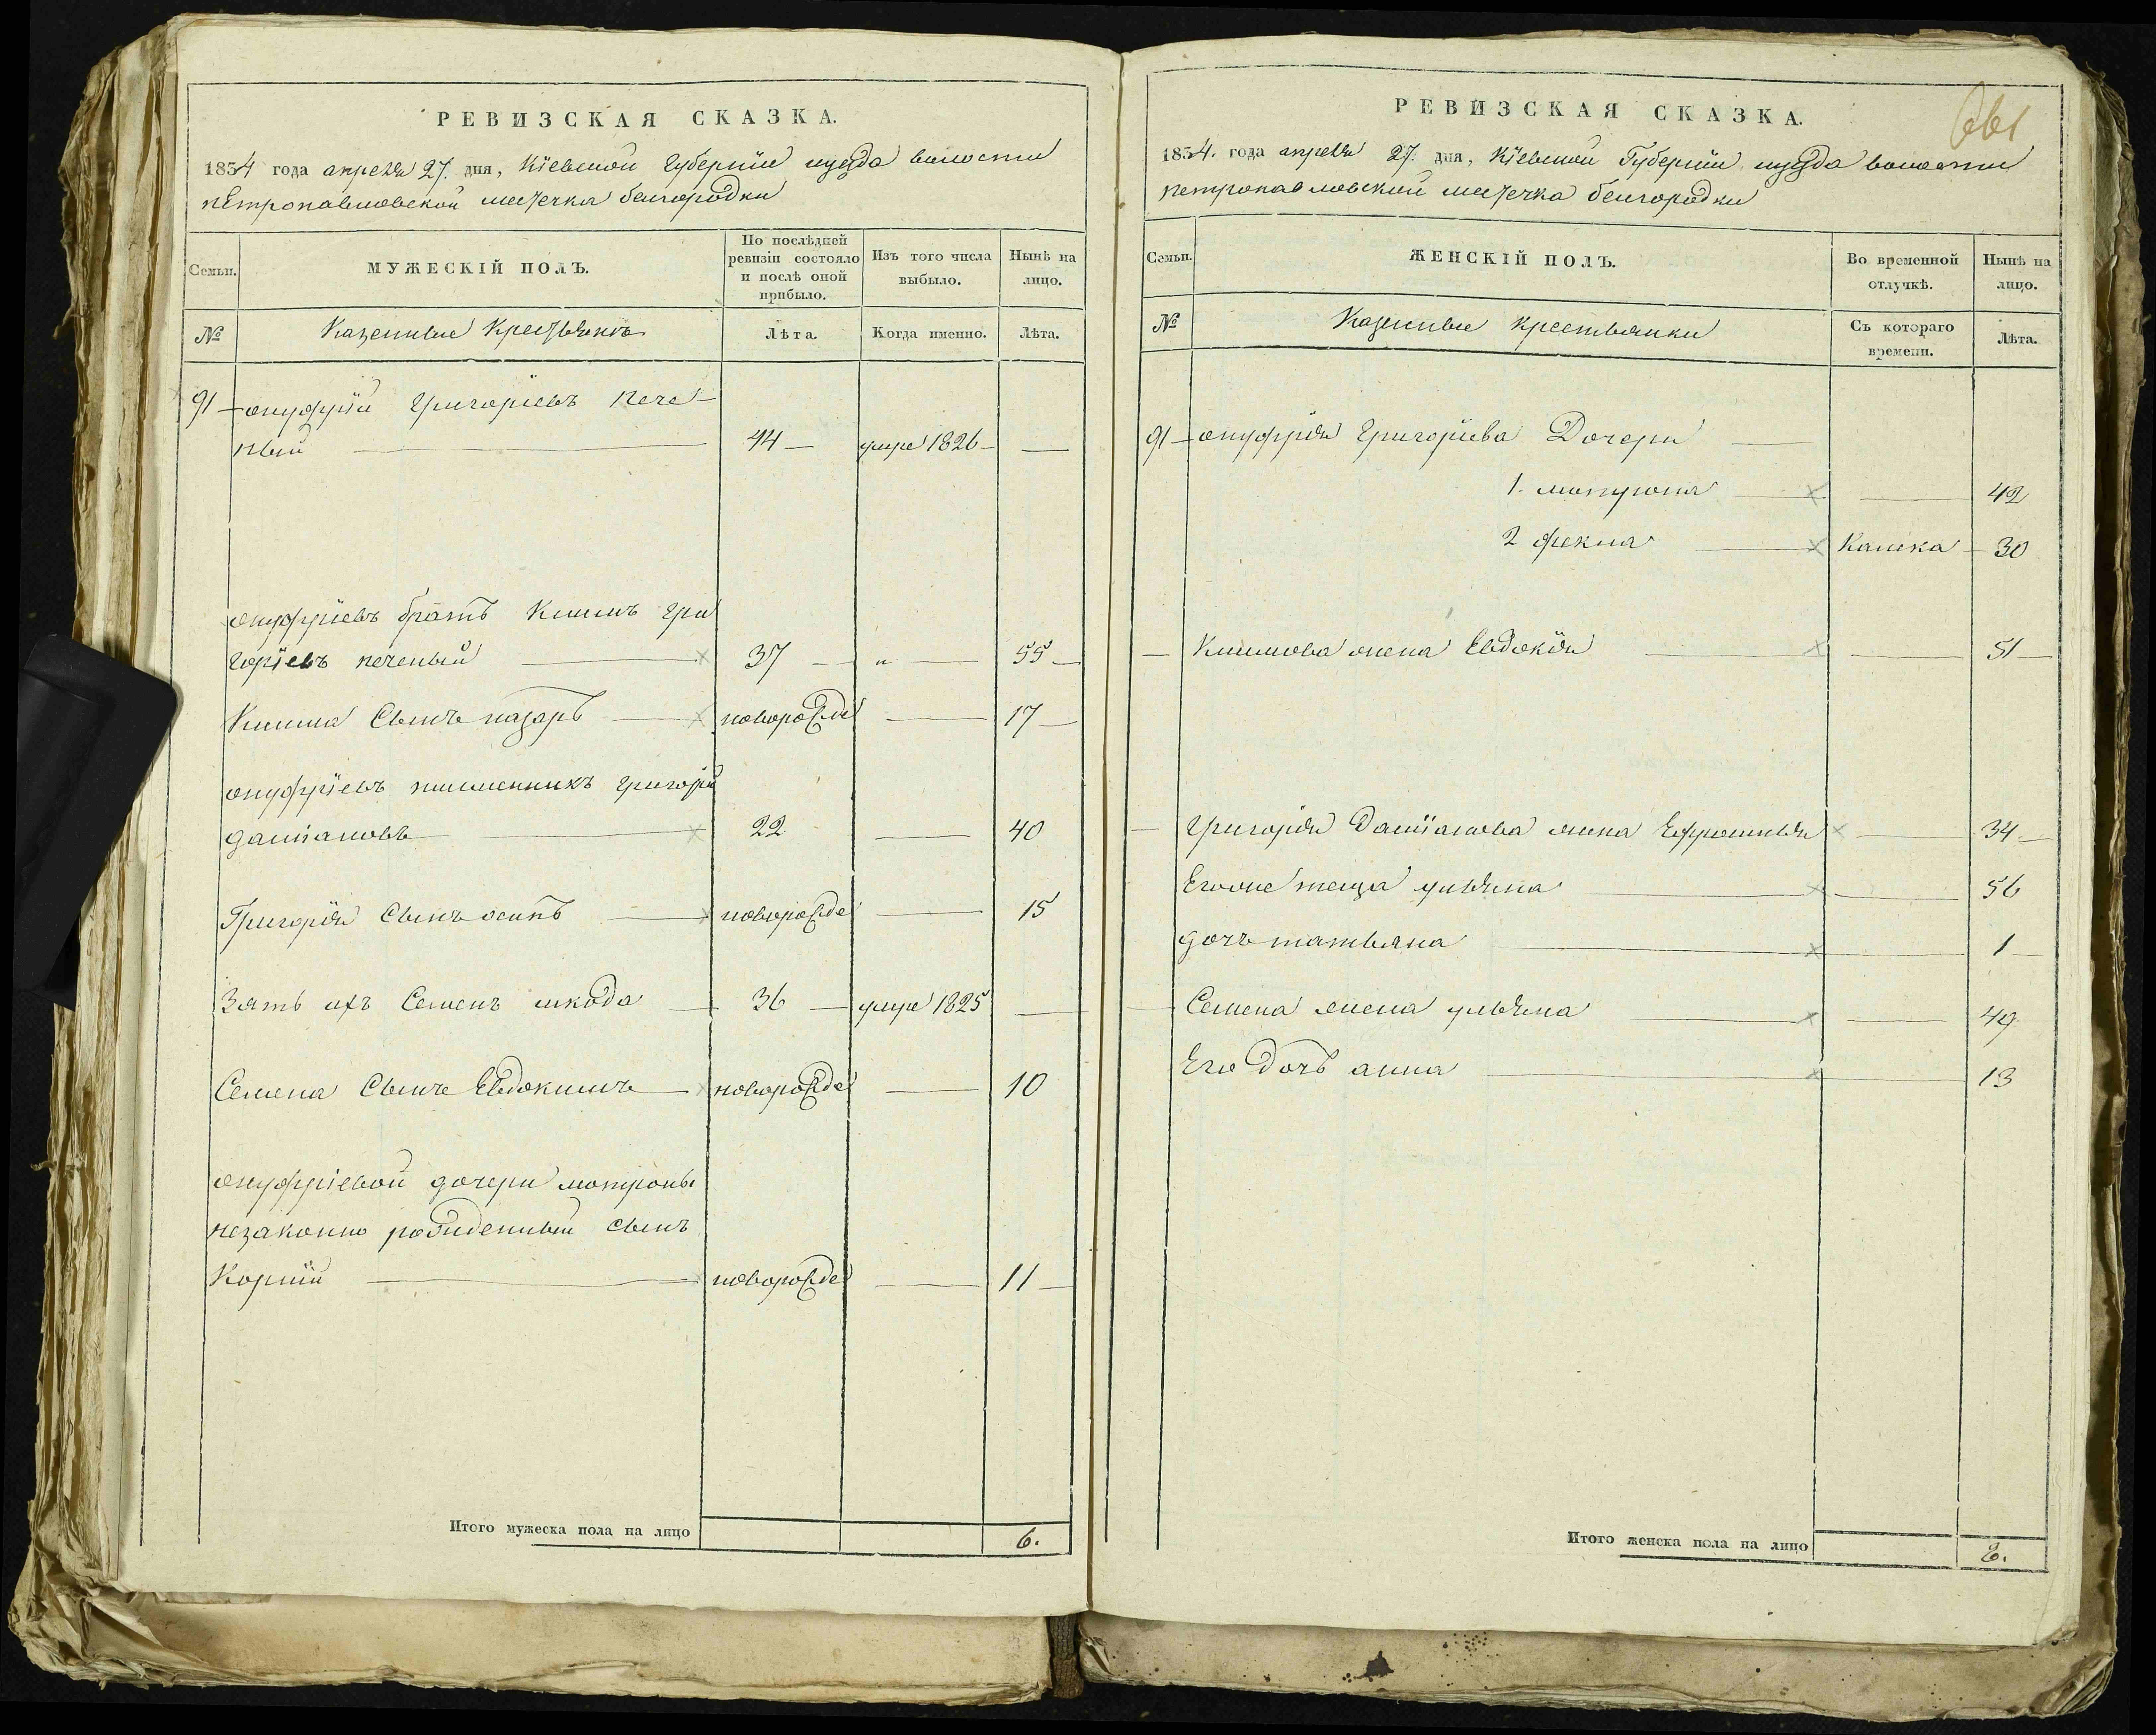 РЕВИЗСКАЯ СКАЗКА.
1834 года апреля 27. дня, Кіевской Губерніи уезда волости
петропавловской местечка белгородки
Семьи.
МУЖЕСКІЙ ПОЛЪ.
По послѣдней ревизіи состояло и послѣ оной прибыло.
Изъ того числа выбыло.
Нынѣ на лицо.
№
Казенные Крестьяне
Лѣта.
Когда именно.
Лѣта.
91 онуфрій Григоріевъ Пече-
ный 44 умре 1826
онуфріевъ братъ Климъ Гри
горіевъ печеный 37 " 55
Клима Сынъ назаръ новорожде 17
онуфріевъ племенникъ григорій
даміановъ 22 40
Григорія Сынъ осипъ новорожде 15
Зять ихъ Семенъ шкода 36 умре 1825
Семена Сынъ Евдокимъ новорожде 10
онуфріевой дочери мотроны
незаконно рожденный сынъ
Корнѣй новорожде 11
Итого мужеска пола на лицо 6.
661
РЕВИЗСКАЯ СКАЗКА.
1834. года апреля 27. дня, Кіевской Губерніи уезда волости
петропавловской местечка белгородки
Семьи.
ЖЕНСКІЙ ПОЛЪ.
Во временной отлучкѣ.
Нынѣ на лицо.
№
Казенные крестьянки
Съ котораго времени.
Лѣта.
91 онуфрія Григоріева Дочери
1. мотрона 42
2 фекла Калека 30
Климова жена Евдокія 51
Григорія Даміанова жена Ефросинія 34
Егоже теща ульяна 56
дочь татьяна 1
Семена жена ульяна 49
Его Дочь анна 13
Итого женска пола на лицо 8.